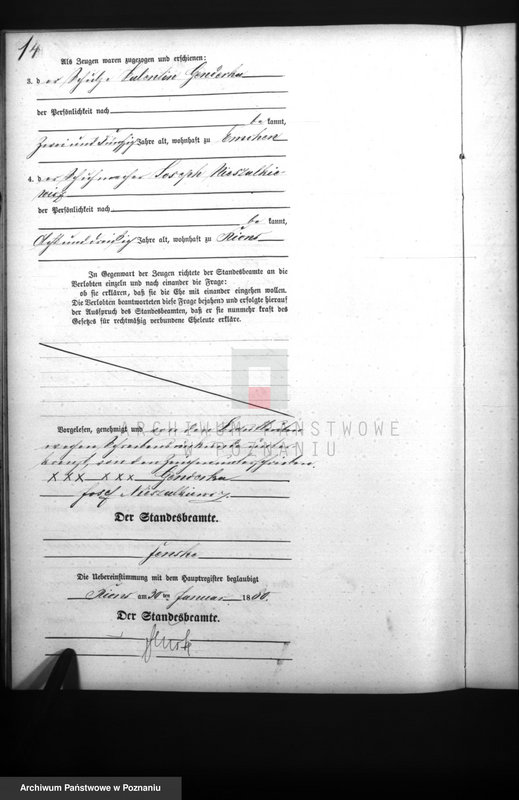 14
Als Zeugen waren zugezogen und erschienen:
3. der Schulze Valentin
der Persönlichkeit nach
be kannt,
Zwei und fünfzig Jahre alt, wohnhaft zu Emchen
4. der Schuhmacher Joseph
der Persönlichkeit nach
be kannt,
Acht und dreißig Jahre alt, wohnhaft zu Xions
In Gegenwart der Zeugen richtete der Standesbeamte an die
Verlobten einzeln und nach einander die Frage:
ob sie erklären, daß sie die Ehe mit einander eingehen wollen.
Die Verlobten beantworteten diese Frage bejahend und erfolgte hierauf
der Ausspruch des Standesbeamten, daß er sie nunmehr kraft des
Gesetzes für rechtmäßig verbundene Eheleute erkläre.
ARCHIWUM PAŃSTWOWE
W POZNANIU
Vorgelesen, genehmigt und von den
wegen Schreibensunkunde unter
kreuzt, von den Zeugen unterschrieben.
x x x x x x
Josef
Der Standesbeamte.
Jenske
Die Uebereinstimmung mit dem Hauptregister beglaubigt
Xions am 30 ten Januar 1880.
Der Standesbeamte.
Jenske
Archiwum Państwowe w Poznaniu